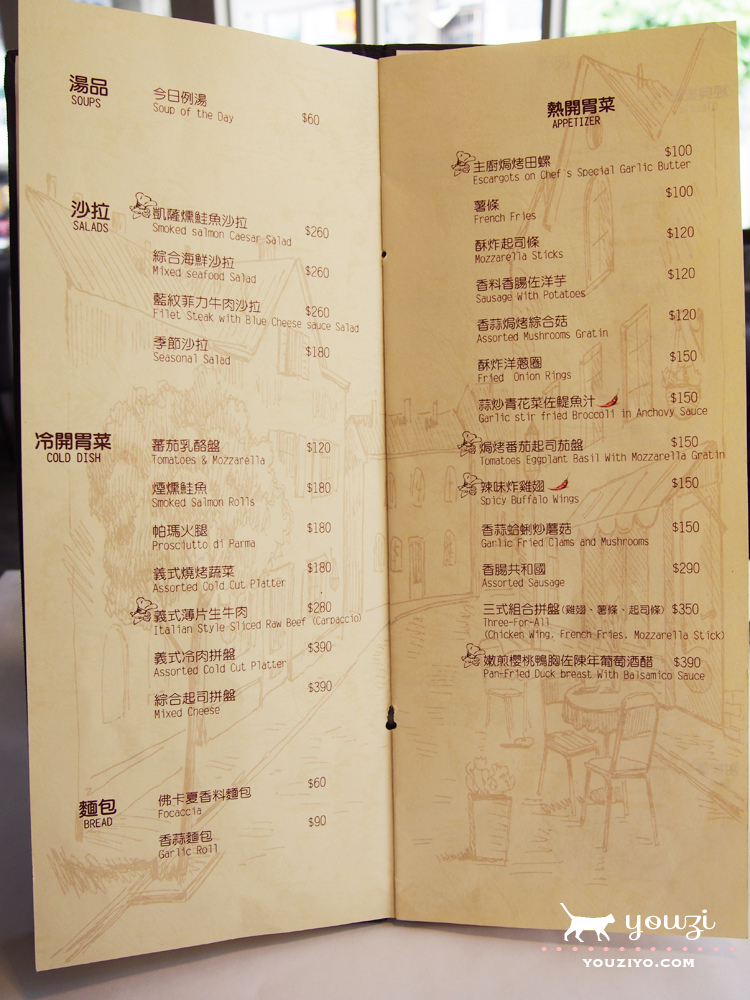 湯品
SOUPS
今日例湯
Soup of the Day
$60
沙拉
SALADS
凱薩燻鮭魚沙拉
Smoked salmon Caesar Salad
$260
綜合海鮮沙拉
Mixed seafood Salad
$260
藍紋菲力牛肉沙拉
Filet Steak with Blue Cheese sauce Salad
$260
季節沙拉
Seasonal Salad
$180
冷開胃菜
COLD DISH
蕃茄乳酪盤
Tomatoes & Mozzarella
$120
煙燻鮭魚
Smoked Salmon Rolls
$180
帕瑪火腿
Prosciutto di Parma
$180
義式燒烤蔬菜
Assorted Cold Cut Platter
$180
義式薄片生牛肉
Italian Style Sliced Raw Beef (Carpaccio)
$280
義式冷肉拼盤
Assorted Cold Cut Platter
$390
綜合起司拼盤
Mixed Cheese
$390
麵包
BREAD
佛卡夏香料麵包
Focaccia
$60
香蒜麵包
Garlic Roll
$90
熱開胃菜
APPETIZER
主廚焗烤田螺
Escargots on Chef's Special Garlic Butter
$100
薯條
French Fries
$100
酥炸起司條
Mozzarella Sticks
$120
香料香腸佐洋芋
Sausage With Potatoes
$120
香蒜焗烤綜合菇
Assorted Mushrooms Gratin
$120
酥炸洋蔥圈
Fried Onion Rings
$150
蒜炒青花菜佐鯷魚汁
Garlic stir fried Broccoli in Anchovy Sauce
$150
焗烤番茄起司茄盤
Tomatoes Eggplant Basil With Mozzarella Gratin
$150
辣味炸雞翅
Spicy Buffalo Wings
$150
香蒜蛤蜊炒蘑菇
Garlic Fried Clams and Mushrooms
$150
香腸共和國
Assorted Sausage
$290
三式組合拼盤(雞翅、薯條、起司條)
Three-For-All
(Chicken Wing, French Fries, Mozzarella Stick)
$350
嫩煎櫻桃鴨胸佐陳年葡萄酒醋
Pan-Fried Duck breast With Balsamico Sauce
$390
youzi
YOUZIYO.COM